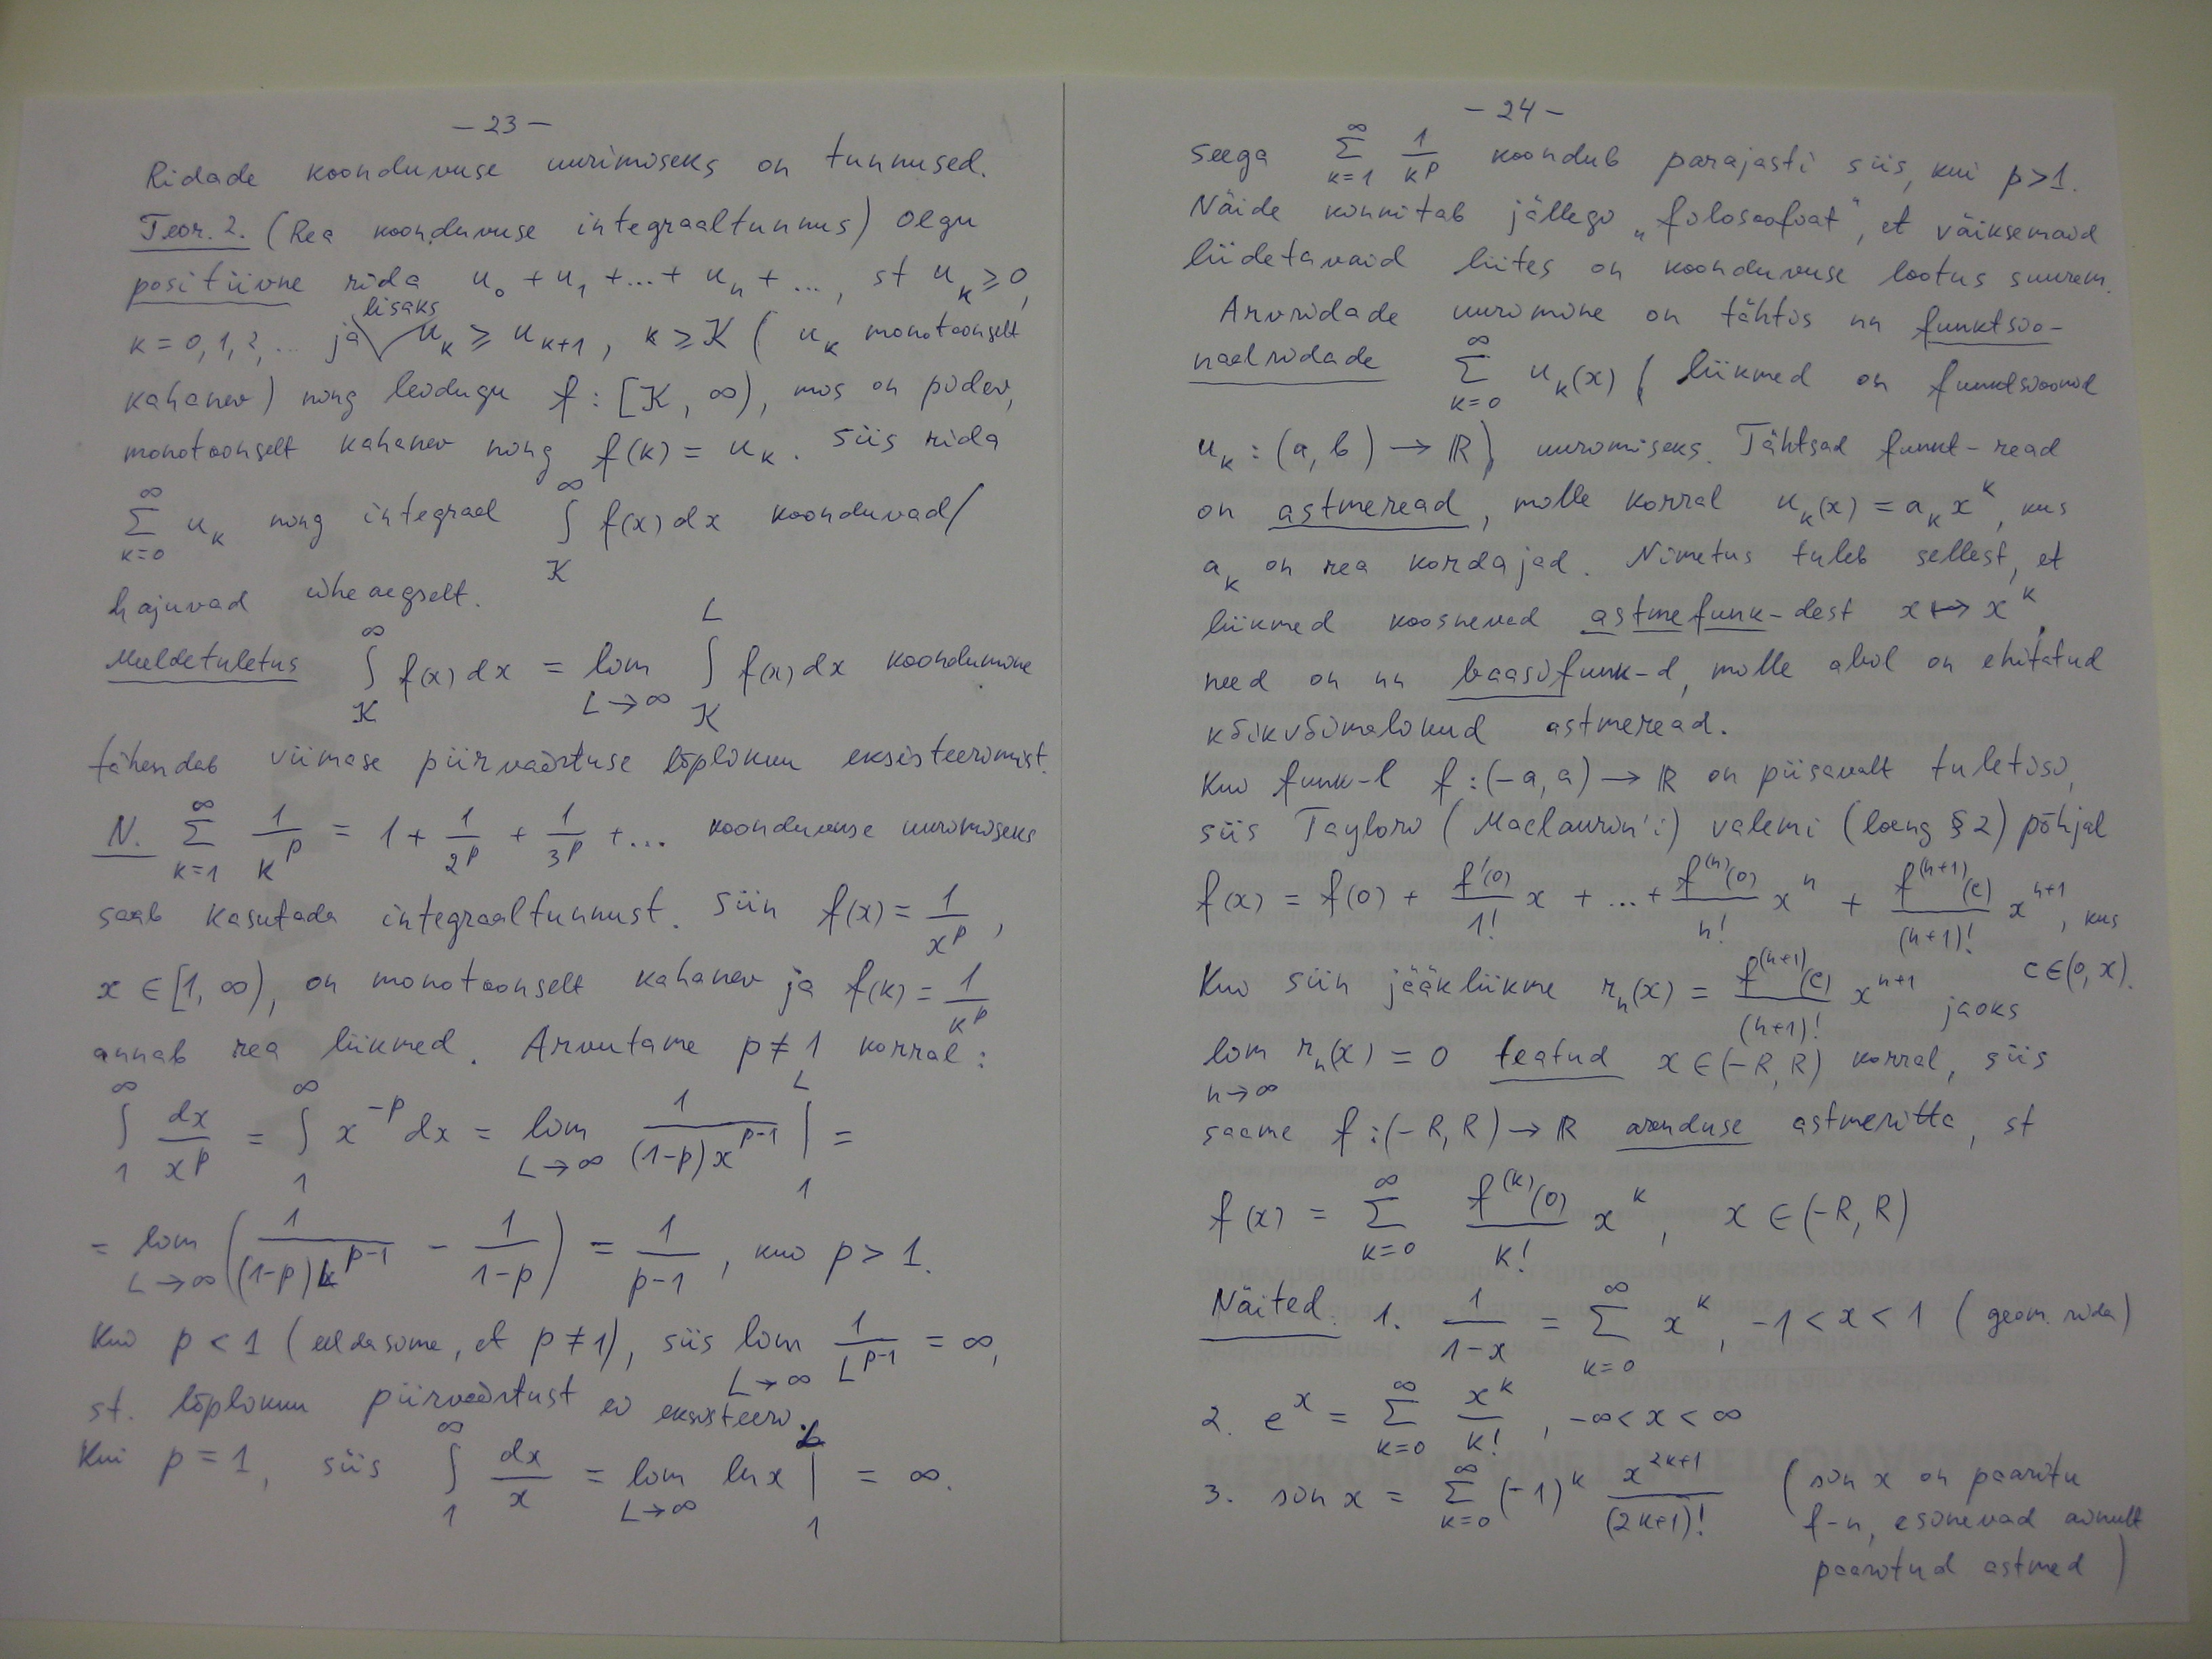 – 23 –
Ridade koonduvuse uurimiseks on tunnused.
Teor. 2. (Rea koonduvuse integraaltunnus) Olgu
positiivne rida u₀ + u₁ + ... + uₙ + ..., st u_k ≥ 0,
lisaks
k = 0, 1, 2, ... ja √ u_k ≥ u_{k+1}, k ≥ K ( u_k monotoonselt
kahanev) ning leidugu f : [K, ∞), mis on pidev,
monotoonselt kahanev ning f(k) = u_k. Siis rida
∑_{k=0}^{∞} u_k ning integraal ∫_K^∞ f(x) dx koonduvad/
hajuvad üheaegselt.
Meeldetuletus ∫_K^∞ f(x) dx = lim_{L→∞} ∫_K^L f(x) dx koondumine
tähendab viimase piirväärtuse lõplikku eksisteerimist.
N. ∑_{k=1}^{∞} 1/k^p = 1 + 1/2^p + 1/3^p + ... koonduvuse uurimiseks
saab kasutada integraaltunnust. Siin f(x) = 1/x^p,
x ∈ [1, ∞), on monotoonselt kahanev ja f(k) = 1/k^p
annab rea liikmed. Arvutame p ≠ 1 korral:
∫_1^∞ dx/x^p = ∫_1^∞ x^{-p} dx = lim_{L→∞} 1/((1-p)x^{p-1}) |_1^L =
= lim_{L→∞} (1/((1-p)L^{p-1}) − 1/(1-p)) = 1/(p-1), kui p > 1.
Kui p < 1 (eeldasime, et p ≠ 1), siis lim_{L→∞} 1/L^{p-1} = ∞,
st. lõplikku piirväärtust ei eksisteeri.
Kui p = 1, siis ∫_1^∞ dx/x = lim_{L→∞} ln x |_1^L = ∞.
– 24 –
Seega ∑_{k=1}^{∞} 1/k^p koondub parajasti siis, kui p > 1.
Näide kinnitab jällegi „filosoofiat", et väiksemaid
liidetavaid liites on koonduvuse lootus suurem.
Arvridade uurimine on tähtis nn funktsio-
naalridade ∑_{k=0}^{∞} u_k(x) ( liikmed on funktsioonid
u_k : (a, b) → ℝ) uurimiseks. Tähtsad funkt-read
on astmeread, mille korral u_k(x) = a_k x^k, kus
a_k on rea kordajad. Nimetus tuleb sellest, et
liikmed koosnevad astmefunk-dest x ↦ x^k,
need on nn baasifunk-d, mille abil on ehitatud
kõikvõimalikud astmeread.
Kui funk-l f : (-a, a) → ℝ on piisavalt tuletisi,
siis Taylori (Maclaurin'i) valemi (loeng § 2) põhjal
f(x) = f(0) + f'(0)/1! x + ... + f^{(n)}(0)/n! x^n + f^{(n+1)}(c)/(n+1)! x^{n+1}, kus
c ∈ (0, x).
Kui siin jääkliikme r_n(x) = f^{(n+1)}(c)/(n+1)! x^{n+1} jaoks
lim_{n→∞} r_n(x) = 0 teatud x ∈ (-R, R) korral, siis
saame f : (-R, R) → ℝ arenduse astmeritta, st
f(x) = ∑_{k=0}^{∞} f^{(k)}(0)/k! x^k, x ∈ (-R, R)
Näited. 1. 1/(1-x) = ∑_{k=0}^{∞} x^k, -1 < x < 1 (geom. rida)
2. e^x = ∑_{k=0}^{∞} x^k/k!, -∞ < x < ∞
3. sin x = ∑_{k=0}^{∞} (-1)^k x^{2k+1}/(2k+1)! (sin x on paaritu
f-n, esinevad ainult
paaritud astmed)